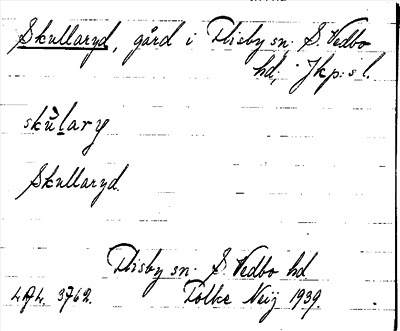 Skullaryd, gård i Flisby sn. S. Vedbo
hd, Jkp:s l.
skùlary
Skullaryd.
Flisby sn. S. Vedbo hd
3762. Folke Neij 1939.